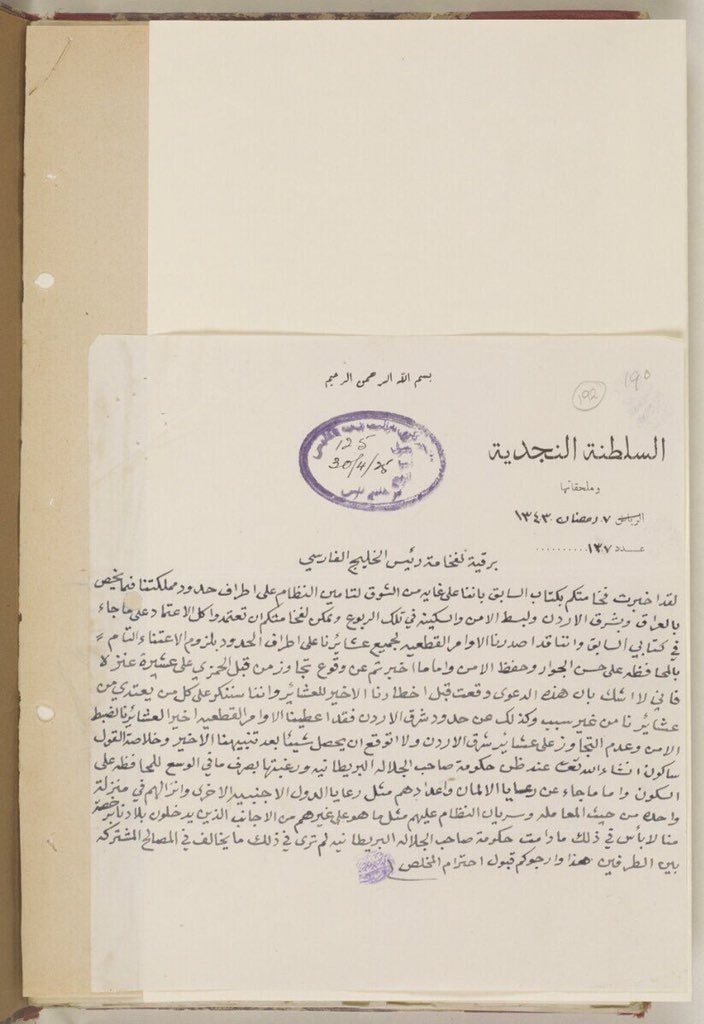 190
192
بسم الله الرحمن الرحيم
السلطنة النجدية
وملحقاتها
الرياض ٧ رمضان ١٣٤٣
عــدد ١٣٧ ..........
125
30/4/25
برقية لفخامة رئيس الخليج الفارسي
لقد اخبرت فخامتكم بكتاب السابق باننا على غاية من الشوق لتامين النظام على اطراف حدود مملكتنا فيما يخص
بالعراق وبشرق الاردن ولبسط الامن والسكينه في تلك الربوع ويمكن لفخامتكم ان تعتمدوا كل الاعتماد على ما جاء
في كتابي السابق واننا قد اصدرنا الاوامر القطعيه لجميع عشائرنا على اطراف الحدود بلزوم الاعتناء التام =
بالمحافظه على حسن الجوار وحفظ الامن واما ما اخبرتم عن وقوع تجاوز من قبل الحمزي على عشيرة عنزه
فاني لا اشك بان هذه الدعوى وقعت قبل اخطارنا الاخير للعشائر واننا سننكر على كل من يعتدي من
عشائرنا من غير سبب وكذلك عن حدود شرق الاردن فقد اعطينا الاوامر القطعيه اخيرا لعشائرنا لضبط
الامن وعدم التجاوز على عشائر شرق الاردن ولا اتوقع ان يحصل شيئا بعد تنبيهنا الاخير وخلاصة القول
ساكون انشاء الله تعالى عند ظن حكومة صاحب الجلاله البريطانيه ورغبتها بصرف ما في الوسع للمحافظه على
السكون واما ما جاء عن رعايا الالمان واعدادهم مثل رعايا الدول الاجنبيه الاخرى وانزالهم في منزلة
واحده من حيث المعامله وسريان النظام عليهم مثل ما هو على غيرهم من الاجانب الذين يدخلون بلادنا برخصة
منا لا بأس في ذلك ما دامت حكومة صاحب الجلاله البريطانيه لم ترى في ذلك ما يخالف في المصالح المشتركه
بين الطرفين هذا وارجوكم قبول احترام المخلص